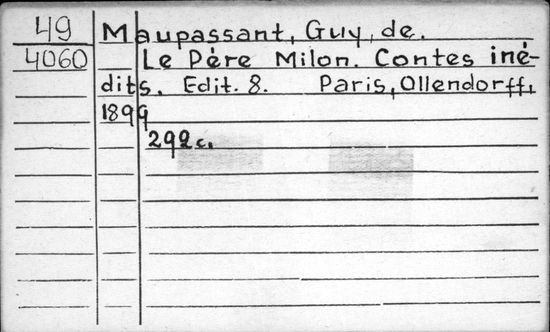 49
4060
Maupassant, Guy, de.
Le Père Milon. Contes iné-
dits. Edit. 8. Paris, Ollendorff,
1899
292 c.